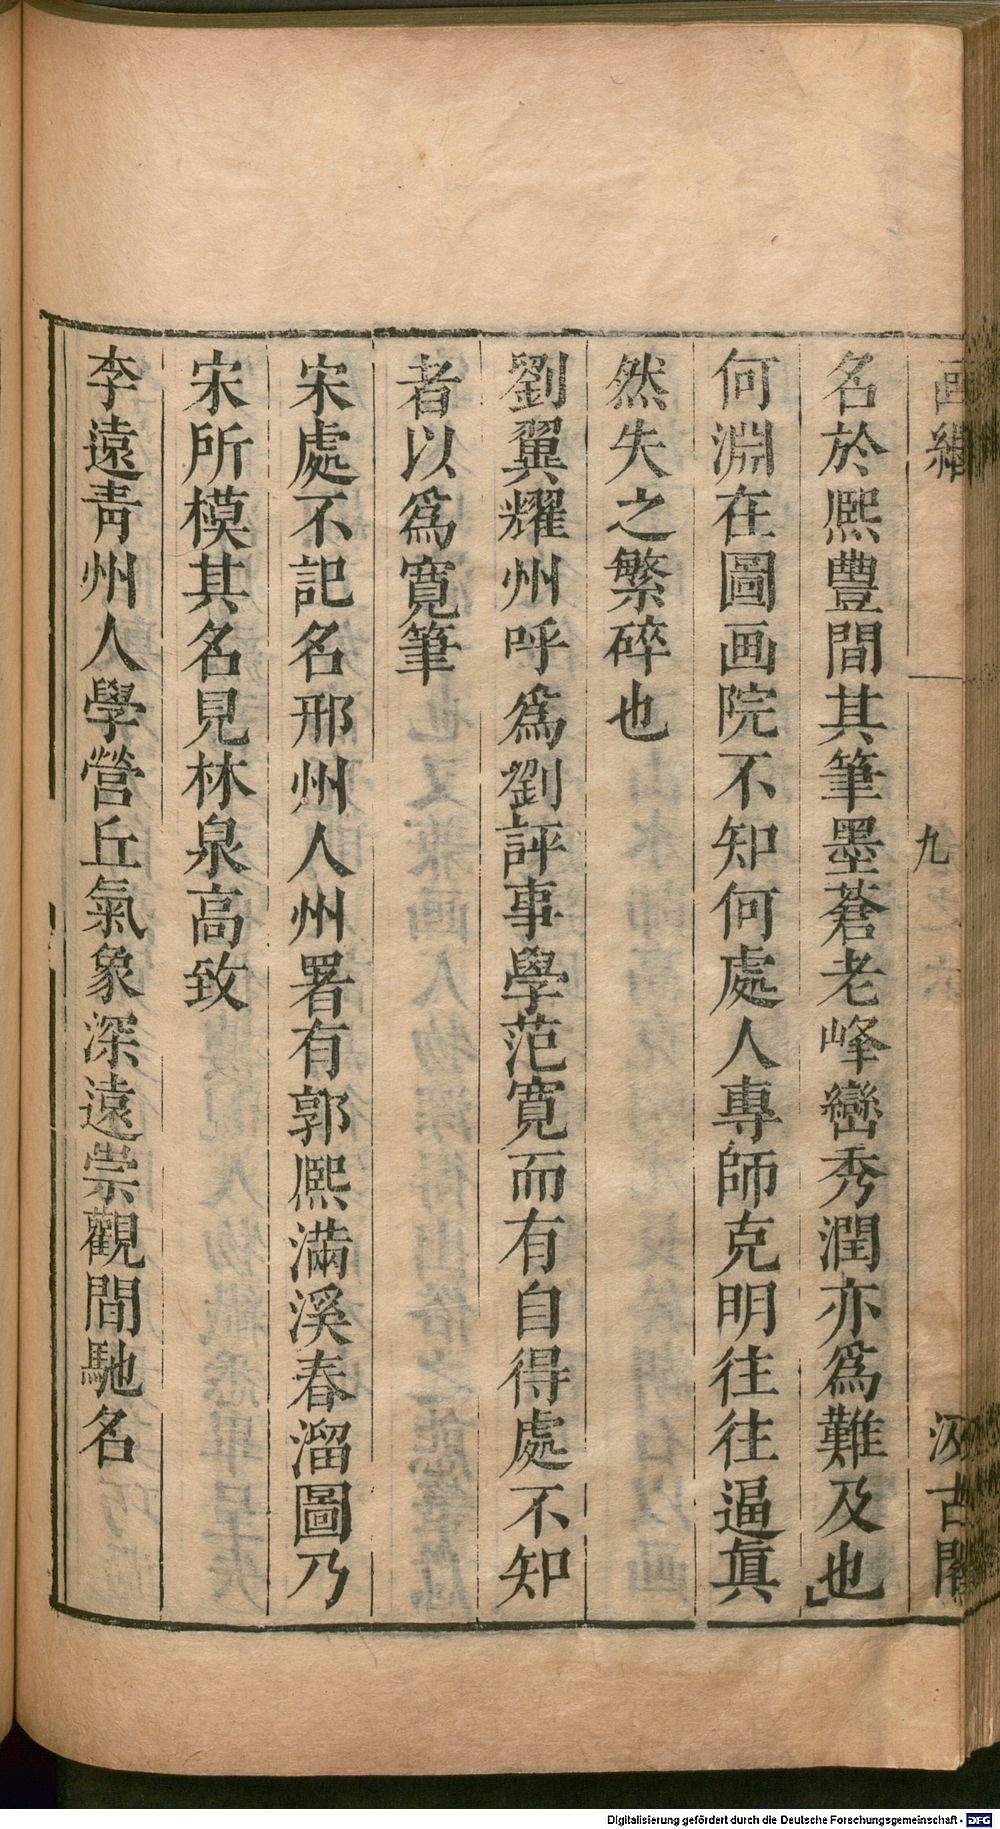 画繼
九
汲古閣
名於熙豐間其筆墨蒼老峰巒秀潤亦爲難及也
何淵在圖画院不知何處人專師克明往往逼眞
然失之繁碎也
劉翼耀州呼爲劉評事學范寛而有自得處不知
者以爲寛筆
宋處不記名邢州人州署有郭熙滿溪春溜圖乃
宋所模其名見林泉高致
李遠青州人學營丘氣象深遠崇觀間馳名
Digitalisierung gefördert durch die Deutsche Forschungsgemeinschaft - DFG